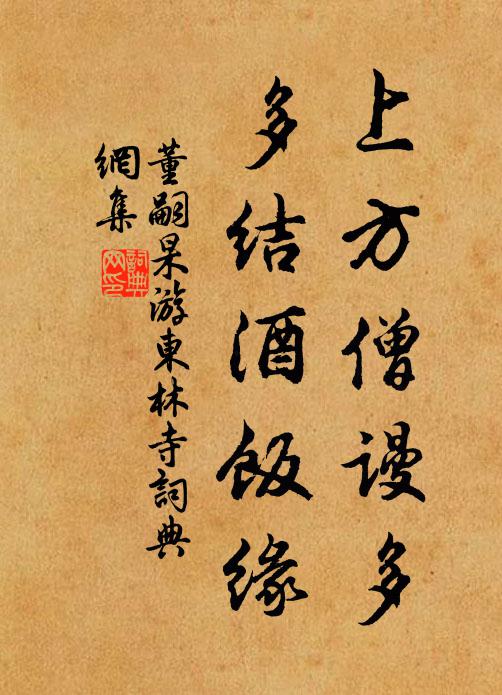 上方僧謾多
多結酒飯緣
董嗣杲游東林寺詞典
網集
詞典網印